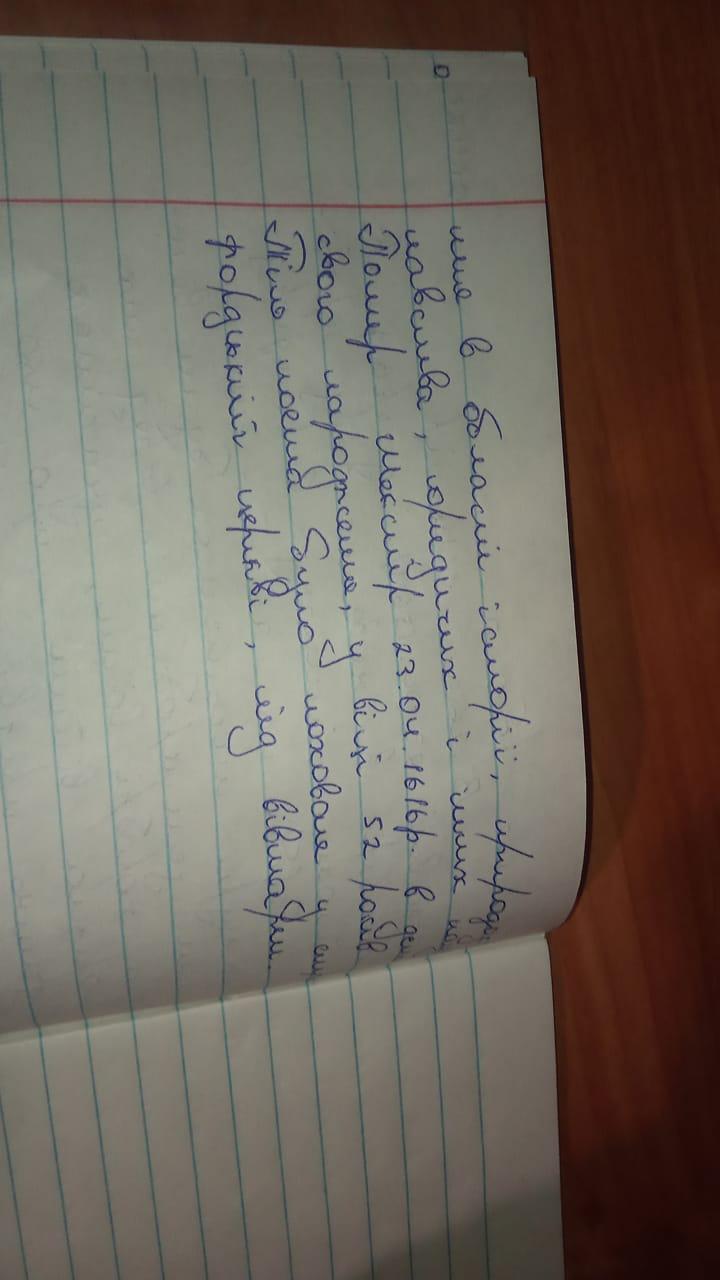 ння в області історії, природо
знавства, юридичних і інших на
Помер Шекспір 23.04.1616р. в ден
свого народження, у віці 52 років
Тіло поета було поховане у
фордській церкві, під вівтарем.